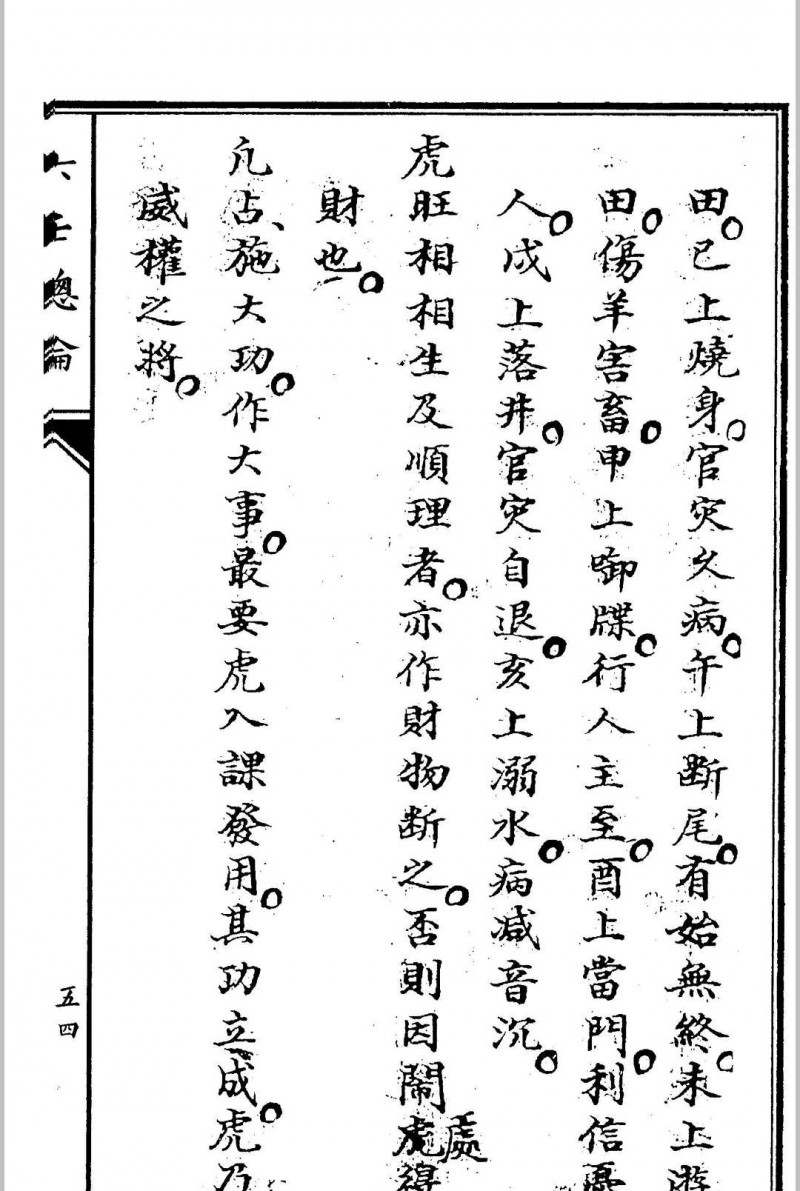 田。巳上燒身。官災久病。午上斷尾。有始無終。未上遊
田。傷羊害畜。申上啣牒。行人主至。酉上當門。利信憂
人。戌上落井。官災自退。亥上溺水。病減音沉。
虎旺相相生及順理者。亦作財物斷之。否則因鬧處得
財也。
凡占、施大功。作大事。最要虎入課發用。其功立成。虎乃
威權之將。
六壬總論
五四